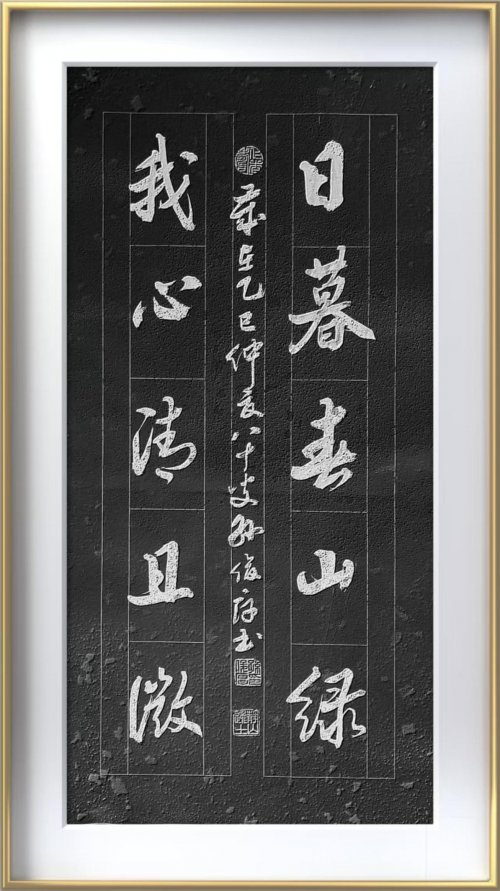 日暮春山绿
我心清且微
岁在乙巳仲夏八十叟孙俊彦书